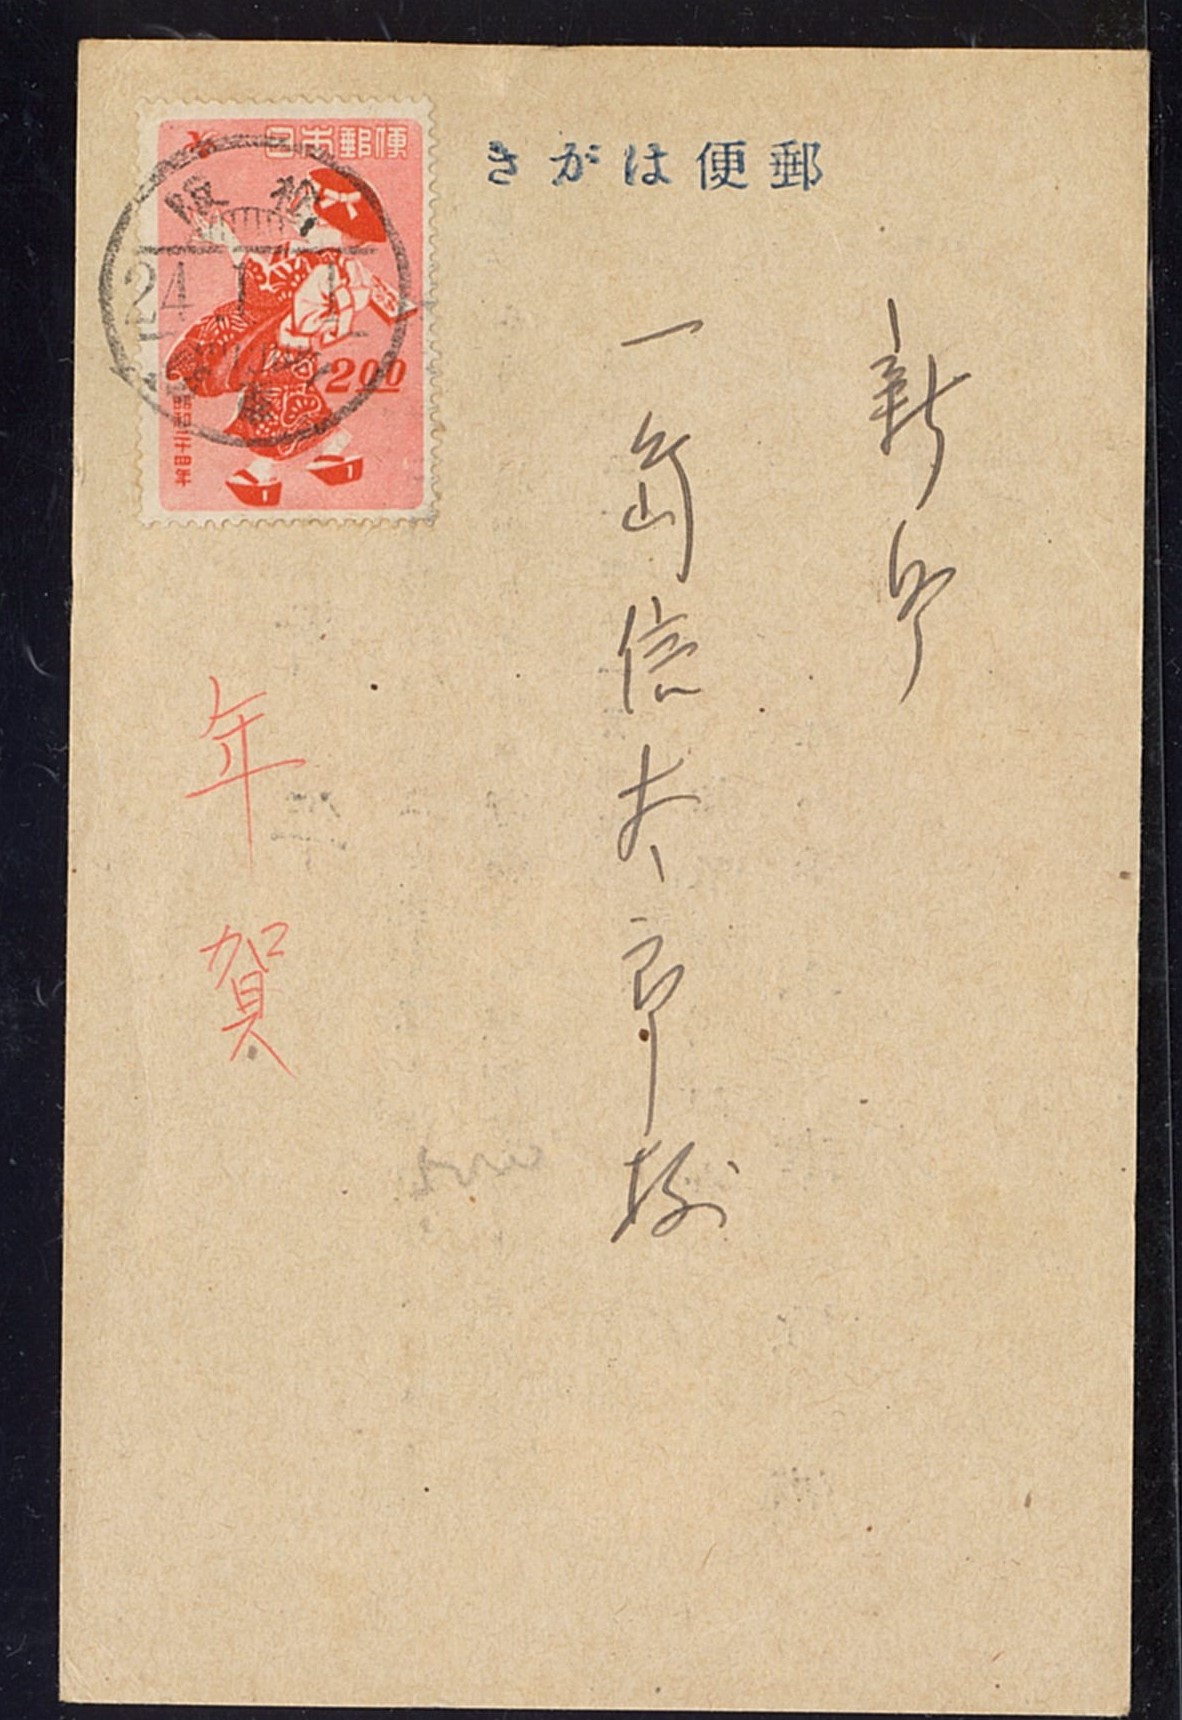 郵便はがき
日本郵便
阪 松
24.1.1
2.00
昭和二十四年
新
一 信太郎様
年賀